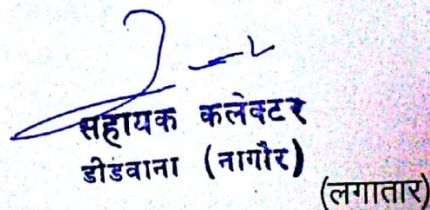 सहायक कलेक्टर
डीडवाना (नागौर)
(लगातार)